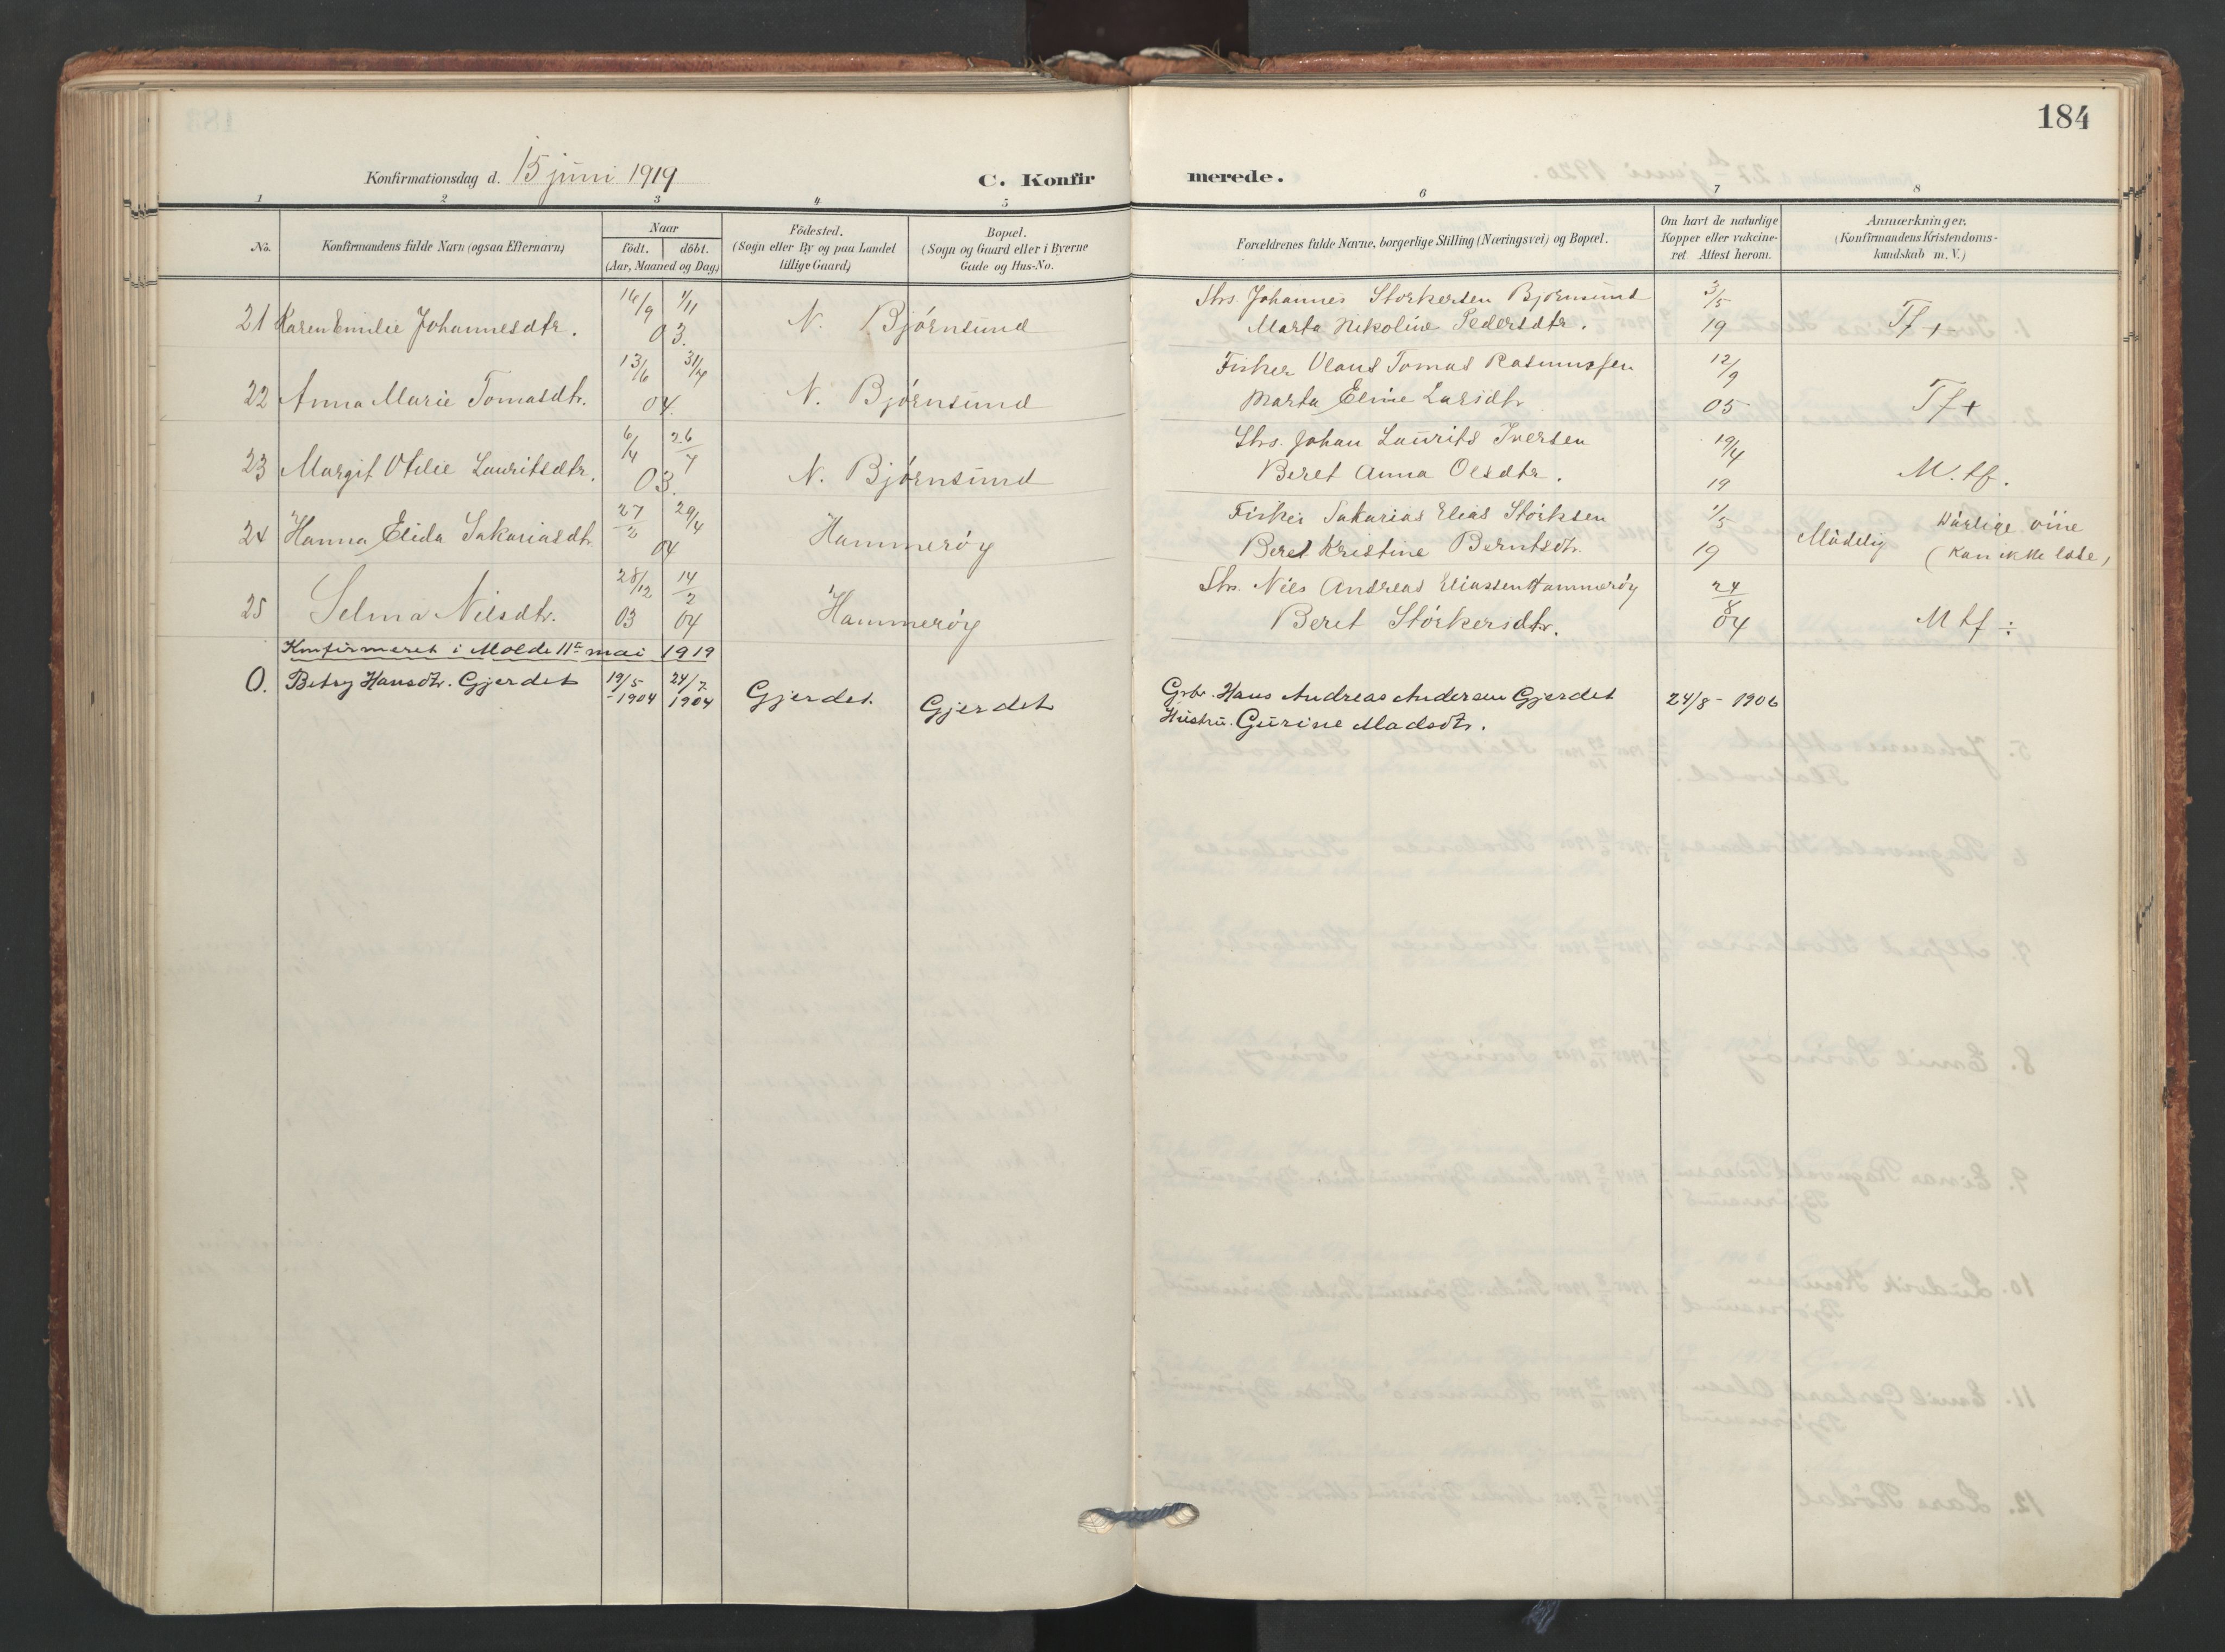 184
Konfirmationsdag d. 15 juni 1919
C. Konfirmerede.
1 2 3 4 5 6 7 8
No.
Konfirmandens fulde Navn (ogsaa Efternavn)
Naar
födt. döbt.
(Aar, Maaned og Dag)
Födested.
(Sogn eller By og paa Landet
tillige Gaard)
Bopæl.
(Sogn og Gaard eller i Byerne
Gade og Hus-No.
Forældrenes fulde Navne, borgerlige Stilling (Næringsvei) og Bopæl.
Om havt de naturlige
Kopper eller vakcine-
ret Attest herom.
Anmærkninger.
(Konfirmandens Kristendoms-
kundskab m. V.)
21 Karen Emilie Johannesdtr. 16/9 1/11 03. N. Bjørnsund
Johannes Storkersen Bjørnsund 3/5
Marta Nikoline Pedersdtr. 19 Tf +
22 Anna Marie Tomasdtr. 13/6 31/7 04. N. Bjørnsund
Fisker Olaus Tomas Rasmussen 12/9
Marta Eline Larsdtr 05 Tf +
23 Margit Otilie Lauritsdtr. 6/4 26/7 03. N. Bjørnsund
Johan Laurits Iversen 19/4
Beret Anna Olsdtr. 19 M. tf.
24 Hanna Elida Sakariasdtr 27/2 29/4 04 Hammerøy
Fisker Sakarias Elias Störksen 1/5
Beret Kristine Berntsdtr. 19 Mådelig
Dårlige öine
(kan ikke læse)
25 Selma Nilsdtr. 28/12 03 14/2 04 Hammerøy
Nils Andreas Eliassen Hammerøy 24/8
Beret Störkersdtr. 04 M tf ÷
Konfirmeret i Molde 11te mai 1919
0. Betsy Hansdtr. Gjerdet 19/5 - 1904 24/7 1904 Gjerdet. Gjerdet
Grbr. Hans Andreas Andersen Gjerdet 24/8 - 1906
Hustru. Gurine Madsdtr.